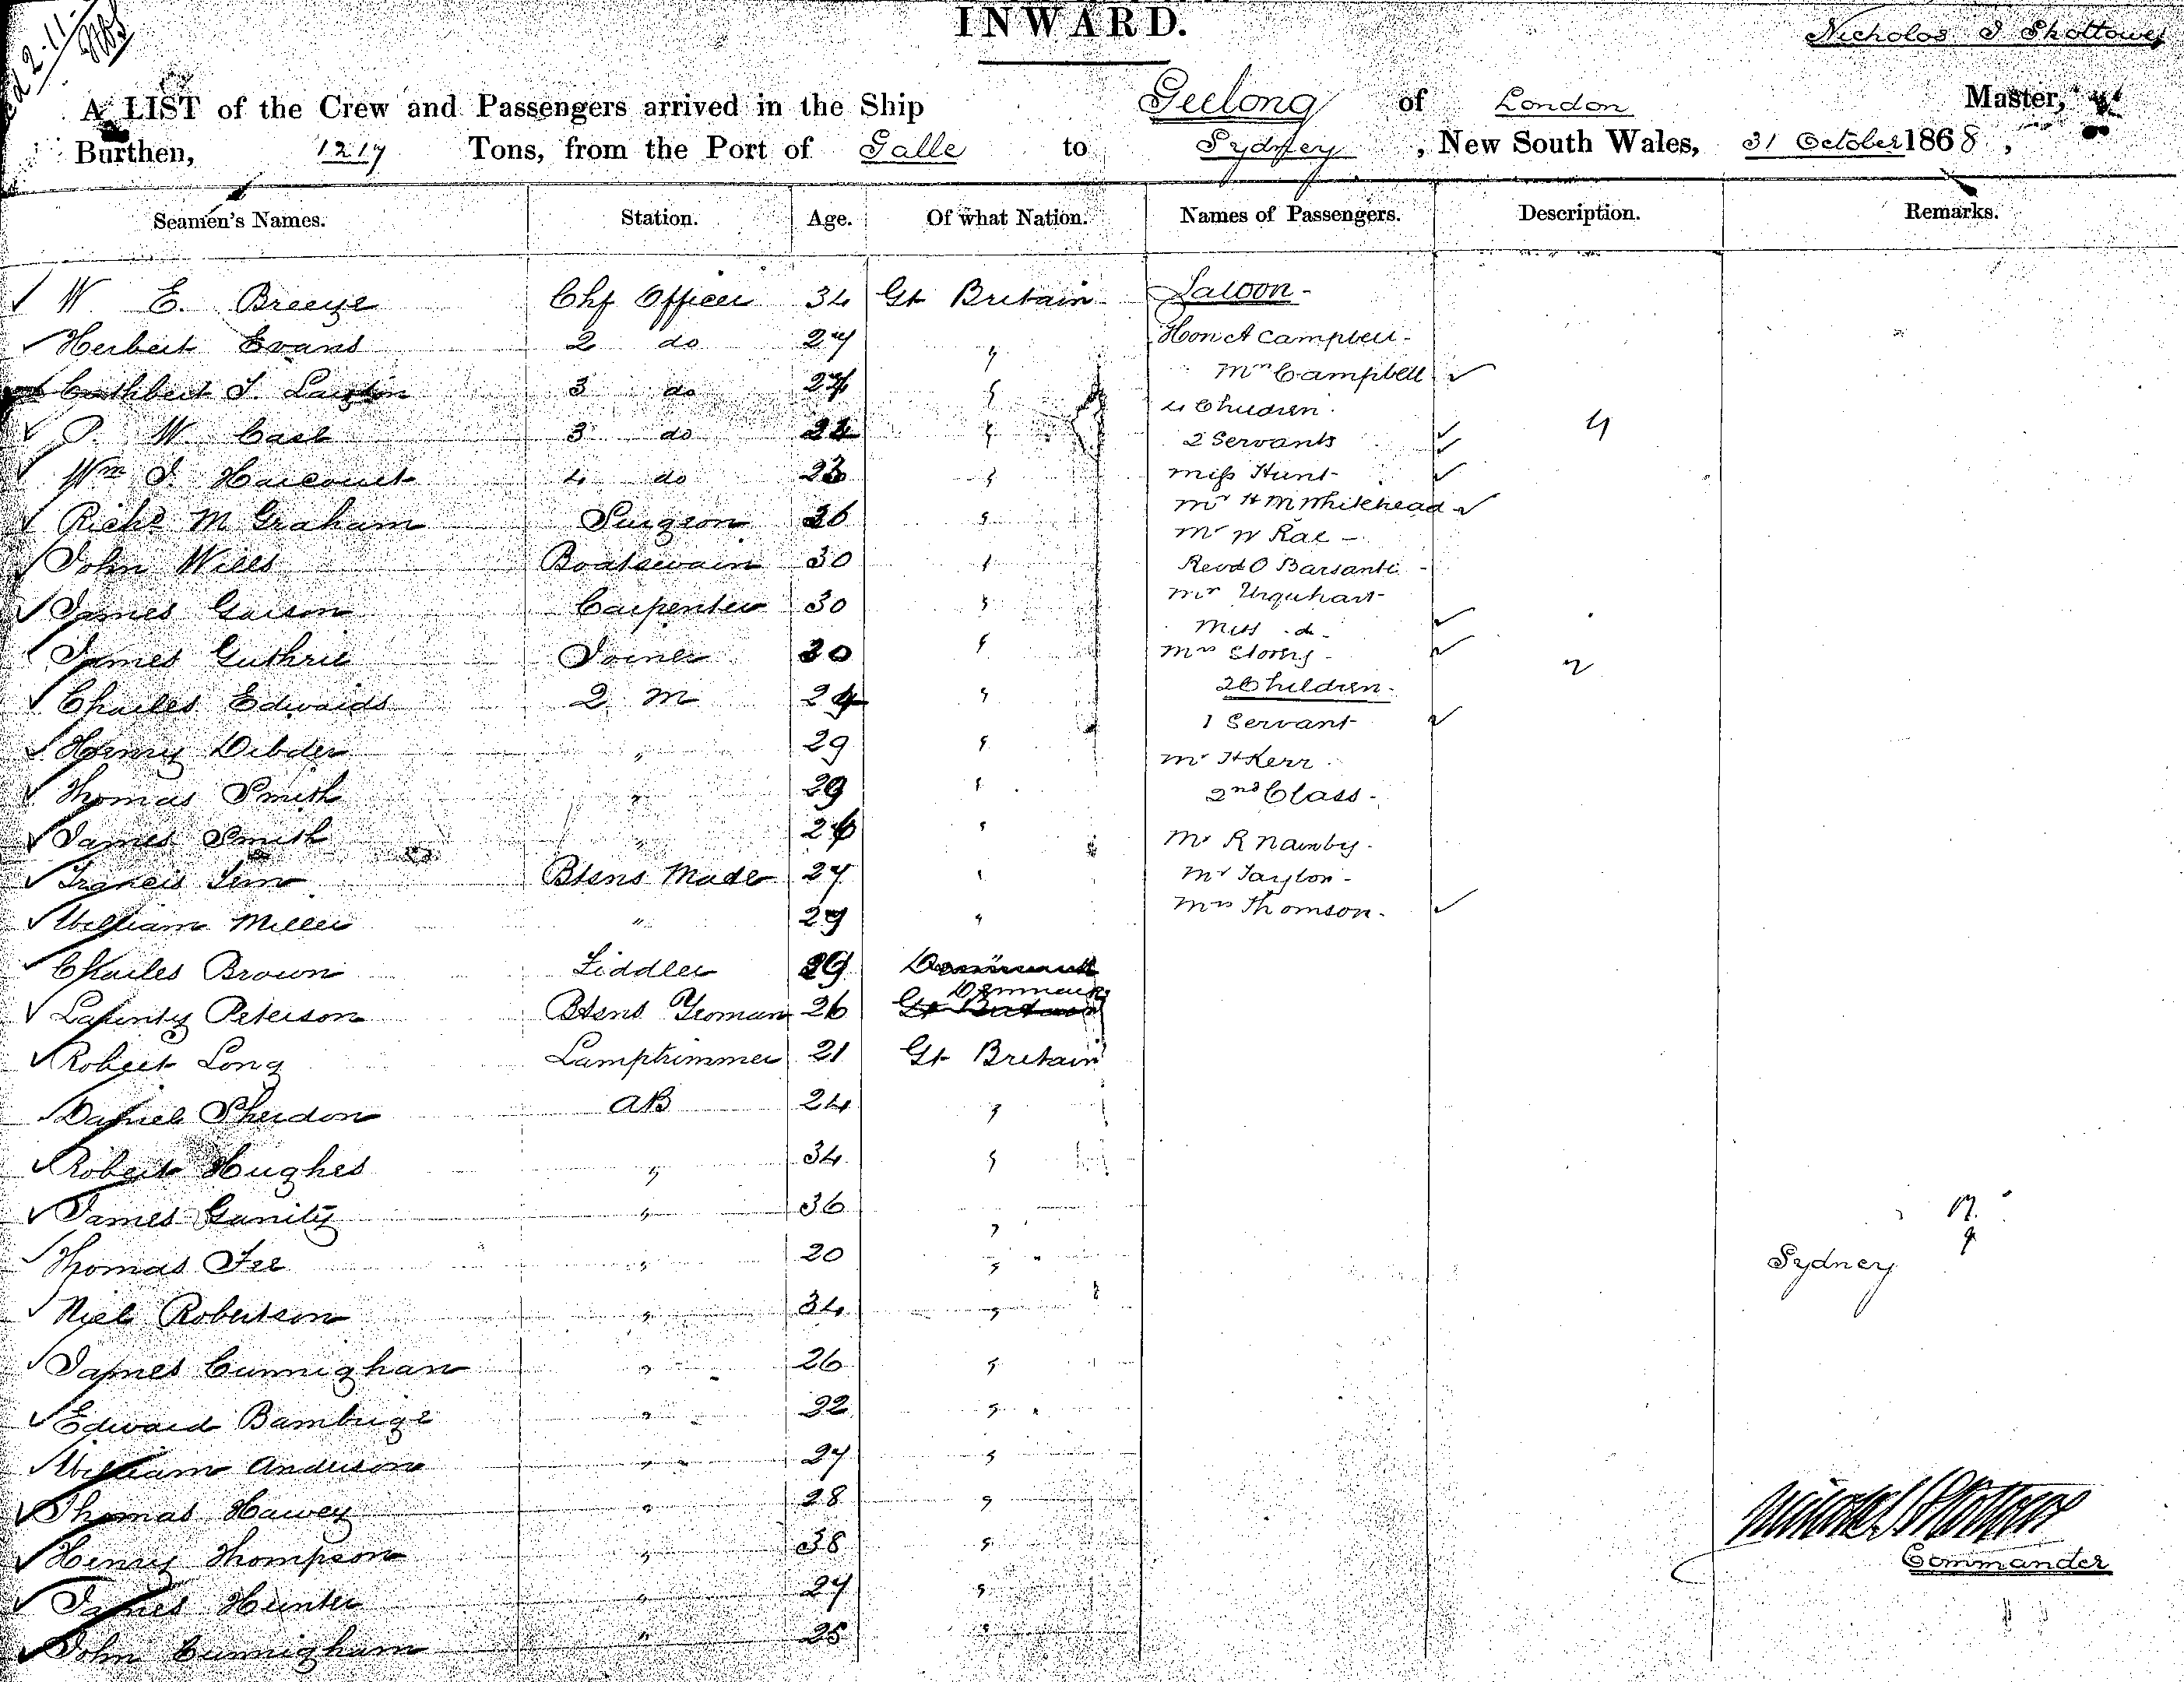 INWARD.
Nicholas I Skottowe
A LIST of the Crew and Passengers arrived in the Ship Geelong of London Master,
Burthen, 1217 Tons, from the Port of Galle to Sydney, New South Wales, 31 October 1868,
Seamen's Names. Station. Age. Of what Nation. Names of Passengers. Description. Remarks.
W E. Breeze Chf Officer 34 Gt Britain
Herbert Evans 2 do 27 "
Cuthbert I. 3 do "
P. W. Case 3 do "
Wm I. Harcourt 4 do 23 "
Richd M Graham Surgeon 36 "
John Wills Boatswain 30 "
James Garson Carpenter 30 "
James Guthrie Joiner 30 "
Charles Edwards 2 M "
Henry Dibden " 29 "
Thomas Smith " 29 "
James Smith " 26 "
Francis Btsns Mate 27 "
William Miller " 29 "
Charles Brown Fiddler 29
Peterson Btsns Yeoman 26 Denmark
Robert Long Lamptrimmer 21 Gt Britain
Daniel Sheridon AB 24 "
Robert Hughes " 34 "
James Garrity " 36 "
Thomas Fee " 20 "
Niel Robertson " 34 "
James Cunnighan " 26 "
Edward Bambrige " 22 "
William Anderson " 27 "
Thomas Hawey " 28 "
Henry Thompson " 38 "
James Hunter " 27 "
John Cunnigham " 25 "
Saloon -
Hon A Campbell -
Mrs Campbell
4 Children
4
2 Servants
Miss Hunt
Mr H M Whitehead
Mr W Rae -
Revd O Barsanti -
Mr Urquhart
Miss do -
Mrs Storey -
2 Children -
2
1 Servant
Mr H Kerr
2nd Class -
Mr R Namby -
Mr Taylor -
Mrs Thomson -
Sydney
Commander